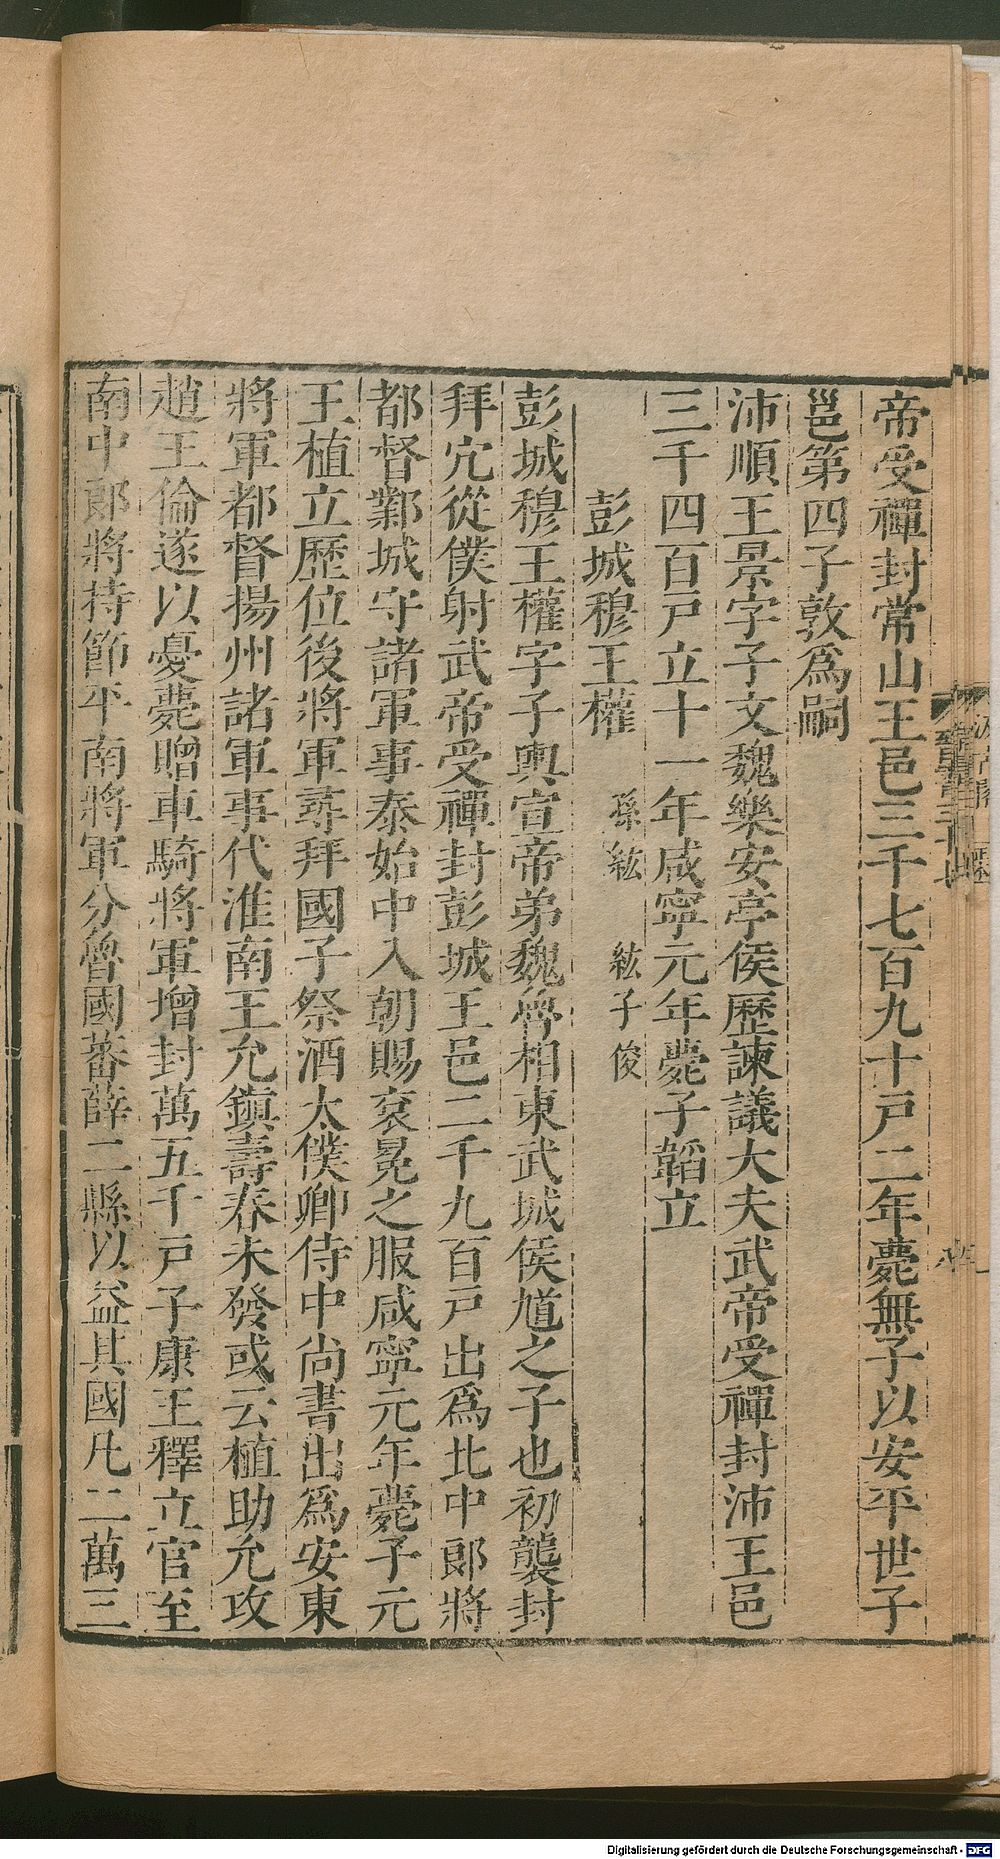 帝受禪封常山王邑三千七百九十戸二年薨無子以安平世子
邕第四子敦爲嗣
沛順王景字子文魏樂安亭侯歷諫議大夫武帝受禪封沛王邑
三千四百戸立十一年咸寧元年薨子韜立
彭城穆王權 孫紘 紘子俊
彭城穆王權字子輿宣帝弟魏魯相東武城侯馗之子也初襲封
拜宂從僕射武帝受禪封彭城王邑二千九百戸出爲北中郎將
都督鄴城守諸軍事泰始中入朝賜衮冕之服咸寧元年薨子元
王植立歷位後將軍尋拜國子祭酒太僕卿侍中尚書出爲安東
將軍都督揚州諸軍事代淮南王允鎮壽春未發或云植助允攻
趙王倫遂以憂薨贈車騎將軍增封萬五千戸子康王釋立官至
南中郎將持節平南將軍分魯國蕃薛二縣以益其國凡二萬三
Digitalisierung gefördert durch die Deutsche Forschungsgemeinschaft - DFG